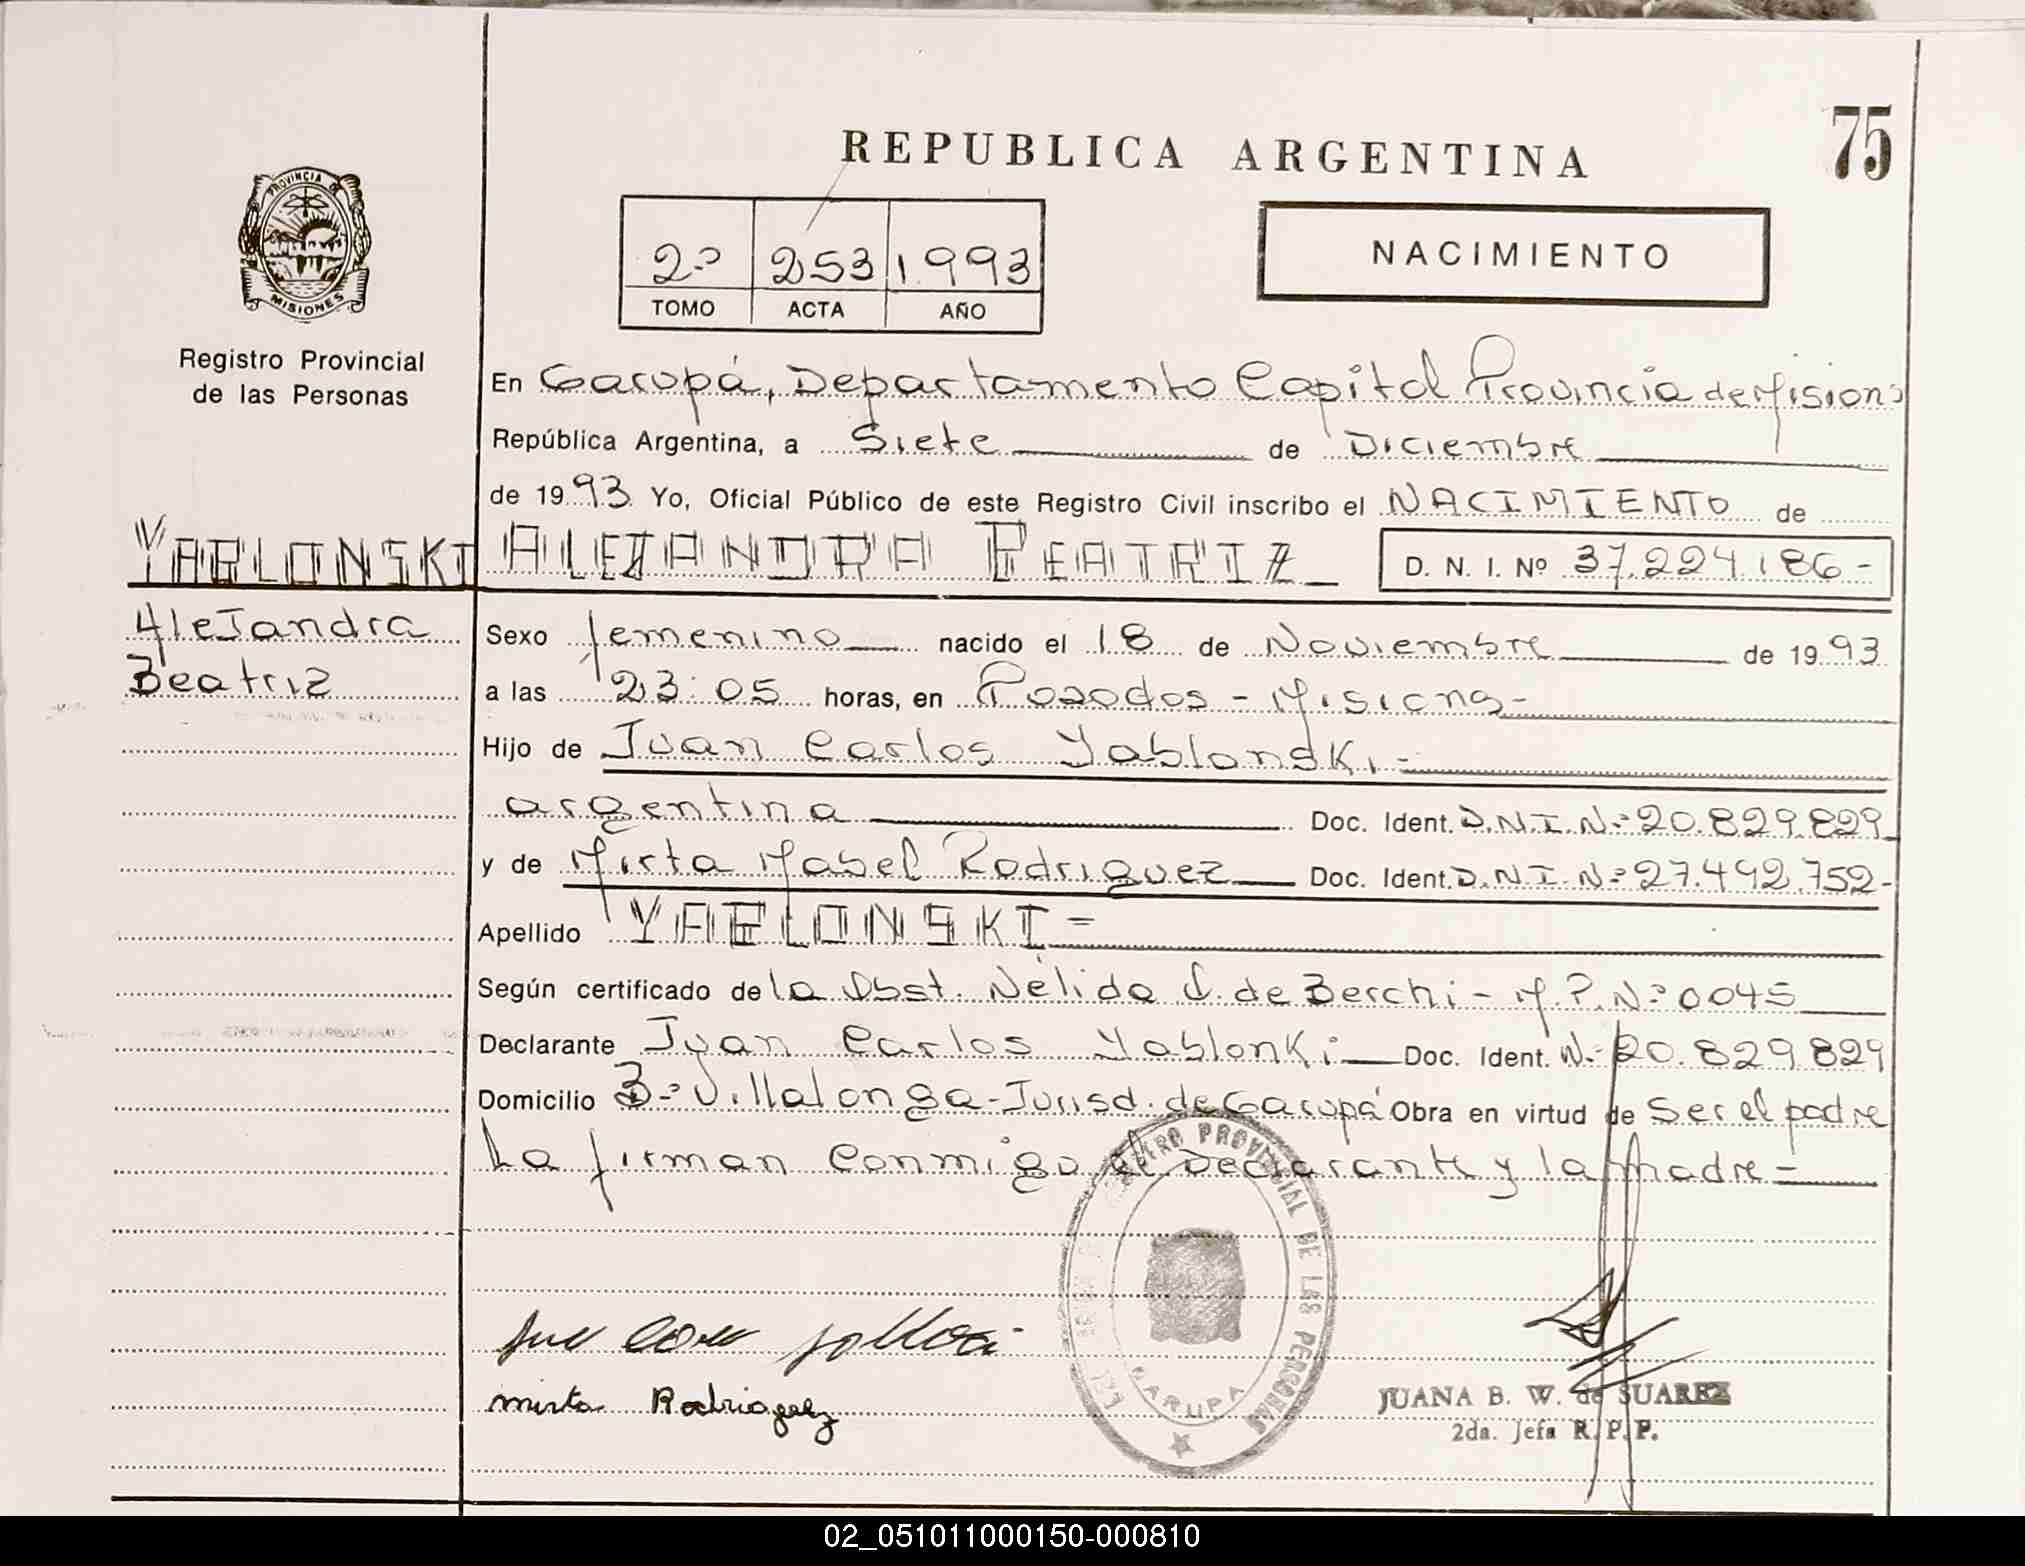 75
REPUBLICA ARGENTINA
PROVINCIA DE
MISIONES
2º 253 1993
TOMO ACTA AÑO
NACIMIENTO
Registro Provincial
de las Personas
En Garupá, Departamento Capital Provincia de Mision
República Argentina, a Siete de Diciembre
de 1993 Yo, Oficial Público de este Registro Civil inscribo el NACIMIENTO de
YABLONSKI ALEJANDRA BEATRIZ D. N. I. Nº 37.224.186-
Alejandra
Beatriz
Sexo femenino nacido el 18 de Noviembre de 1993
a las 23:05 horas, en Posadas - Misiones-
Hijo de Juan Carlos Yablonski.-
argentina Doc. Ident. D.N.I. Nº 20.829.829
y de Mirta Mabel Rodriguez Doc. Ident. D.N.I. Nº 27.492.752-
Apellido YABLONSKI=
Según certificado de la Obst. Nélida de Berchi - M.P. Nº 0045
Declarante Juan Carlos Yablonki Doc. Ident. Nº 20.829.829
Domicilio Bº Villalonga - Jurisd. de Garupá Obra en virtud de ser el padre
La firman conmigo el Declarante y la Madre =
PROVINCIAL DE LAS PERSONAS
GARUPA
Mirta Rodriaguez
JUANA B. W. de SUAREZ
2da. Jefa R. P. P.
02_051011000150-000810